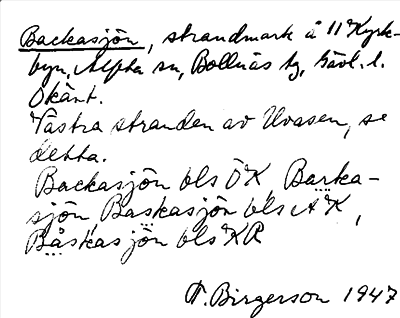 Backasjön, strandmark å 11 Kyrk-
byn, Alfta sn, Bollnäs tg, Gävl. l.
Okänt.
Västra stranden av Uvasen, se
detta.
Backasjön bls ÖK, Barka-
sjön, Baskasjön bls AK,
Båskasjön bls KR
F. Birgerson 1947